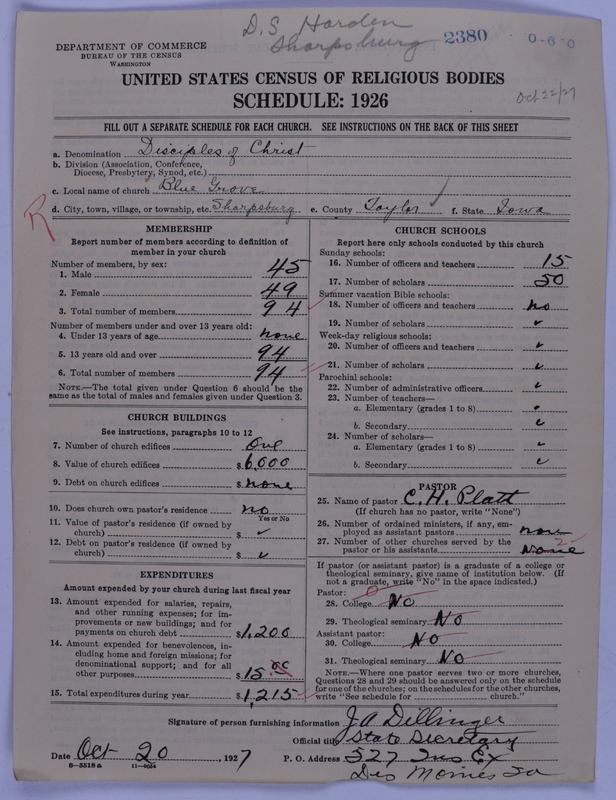 D.S. Harden
Sharpsburg
2380
0-6-0
DEPARTMENT OF COMMERCE
BUREAU OF THE CENSUS
WASHINGTON
Oct 22/27
UNITED STATES CENSUS OF RELIGIOUS BODIES
SCHEDULE: 1926
FILL OUT A SEPARATE SCHEDULE FOR EACH CHURCH. SEE INSTRUCTIONS ON THE BACK OF THIS SHEET
a. Denomination Disciples of Christ
b. Division (Association, Conference,
Diocese, Presbytery, Synod, etc.)
c. Local name of church Blue Grove
d. City, town, village, or township, etc. Sharpsburg e. County Taylor f. State Iowa
R
MEMBERSHIP
Report number of members according to definition of
member in your church
Number of members, by sex:
1. Male 45
2. Female 49
3. Total number of members 94
Number of members under and over 13 years old:
4. Under 13 years of age none
5. 13 years old and over 94
6. Total number of members 94
NOTE.—The total given under Question 6 should be the
same as the total of males and females given under Question 3.
CHURCH BUILDINGS
See instructions, paragraphs 10 to 12
7. Number of church edifices One
8. Value of church edifices $6,000
9. Debt on church edifices $none
10. Does church own pastor's residence? no
Yes or No
11. Value of pastor's residence (if owned by
church) $ ✓
12. Debt on pastor's residence (if owned by
church) $ ✓
EXPENDITURES
Amount expended by your church during last fiscal year
13. Amount expended for salaries, repairs,
and other running expenses; for im-
provements or new buildings; and for
payments on church debt $1,200
14. Amount expended for benevolences,
including home and foreign missions; for
denominational support; and for all
other purposes $15.00
15. Total expenditures during year $1,215
CHURCH SCHOOLS
Report here only schools conducted by this church
Sunday schools:
16. Number of officers and teachers 15
17. Number of scholars 50
Summer vacation Bible schools:
18. Number of officers and teachers no
19. Number of scholars ✓
Week-day religious schools:
20. Number of officers and teachers ✓
21. Number of scholars ✓
Parochial schools:
22. Number of administrative officers ✓
23. Number of teachers—
a. Elementary (grades 1 to 8)
b. Secondary ✓
24. Number of scholars—
a. Elementary (grades 1 to 8) ✓
b. Secondary ✓
PASTOR
25. Name of pastor C. H. Platt
(If church has no pastor, write "None")
26. Number of ordained ministers, if any, em-
ployed as assistant pastors none
27. Number of other churches served by the 2
pastor or his assistants None
If pastor (or assistant pastor) is a graduate of a college or
theological seminary, give name of institution below. (If
not a graduate, write "No" in the space indicated.)
Pastor:
28. College No
29. Theological seminary No
Assistant pastor:
30. College No
31. Theological seminary No
NOTE.—Where one pastor serves two or more churches,
Questions 28 and 29 should be answered only on the schedule
for one of the churches; on the schedules for the other churches,
write "See schedule for church."
Signature of person furnishing information J A Dillinger
Official title State Secretary
Date Oct 20, 1927 P. O. Address 527 Ins Ex
8-5518 a 11-9024
Des Moines Ia